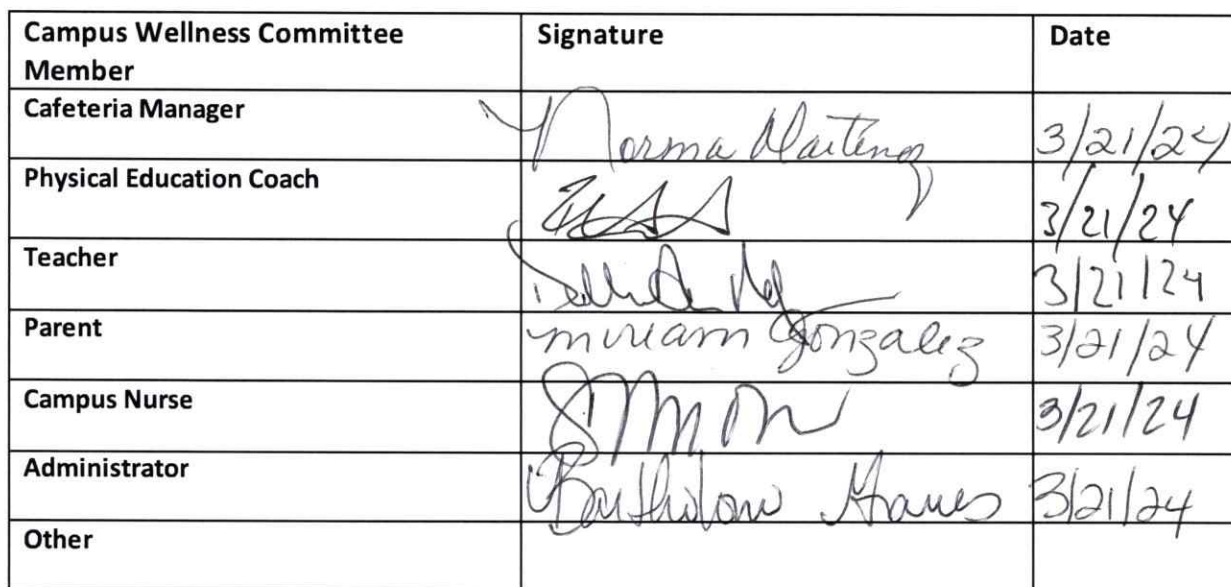 Campus Wellness Committee Member Signature Date
Cafeteria Manager Norma Martinez 3/21/24
Physical Education Coach 3/21/24
Teacher 3/21/24
Parent Miriam Gonzalez 3/21/24
Campus Nurse 3/21/24
Administrator 3/21/24
Other